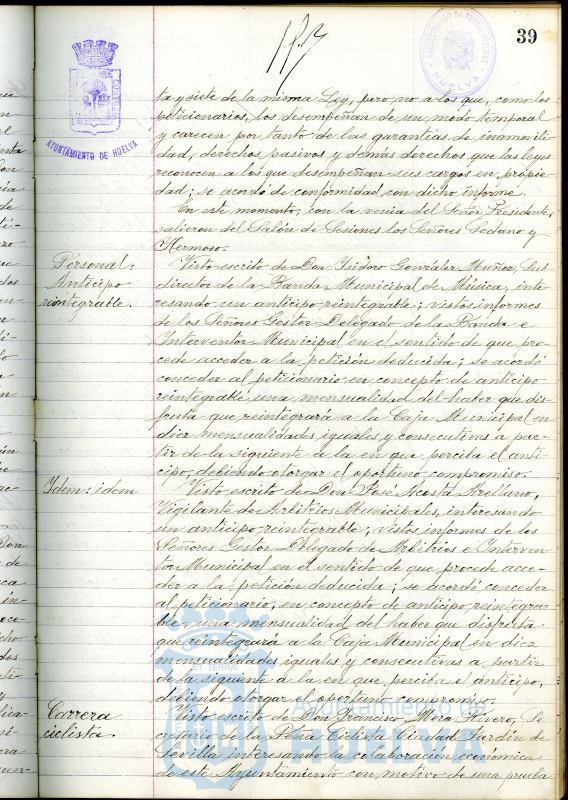 39
AYUNTAMIENTO DE HUELVA
ta y siete de la misma Ley, pero no a los que, como los
peticionarios, los desempeñan de un modo temporal
y carecen por tanto de las garantias de inamovili-
dad, derechos pasivos y demás derechos que las leyes
reconocen a los que desempeñan sus cargos en propie-
dad; se acordó de conformidad con dicho informe.
En este momento, con la venia del Señor Presidente,
salieron del Salón de Sesiones los Señores Sedano y
Hermoso.
Personal:
Anticipo
reintegrable.
Visto escrito de Don Isidoro González Muñoz, Sub-
director de la Banda Municipal de Música, inte-
resando un anticipo reintegrable; vistos informes
de los Señores Gestor Delegado de la Banda e
Interventor Municipal en el sentido de que pro-
cede acceder a la petición deducida; se acordó
conceder al peticionario en concepto de anticipo
reintegrable, una mensualidad del haber que dis-
fruta que reintegrará a la Caja Municipal en
diez mensualidades iguales y consecutivas a par-
tir de la siguiente de la en que perciba el anti-
cipo, debiendo otorgar el oportuno compromiso.
Idem: idem
Visto escrito de Don José Acosta Arellano,
Vigilante de Arbitrios Municipales, interesando
un anticipo reintegrable; vistos informes de los
Señores Gestor Delegado de Arbitrios e Interven-
tor Municipal en el sentido de que procede acce-
der a la petición deducida; se acordó conceder
al peticionario, en concepto de anticipo reintegra-
ble, una mensualidad del haber que disfruta
que reintegrará a la Caja Municipal en diez
mensualidades iguales y consecutivas a partir
de la siguiente de la en que perciba el anticipo,
debiendo otorgar el oportuno compromiso.
Carrera
ciclista.
Visto escrito de Don Francisco Mora Rivero, Se-
cretario de la Peña Ciclista Ciudad Jardín de
Sevilla interesando la colaboración económica
de este Ayuntamiento con motivo de una prueba
Ayuntamiento de
HUELVA